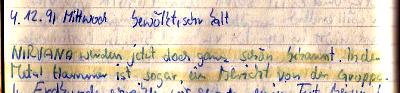 4.12.91 Mittwoch bewölkt, sehr kalt
NIRVANA werden jetzt doch ganz schön bekannt. In den
Metal Hammer ist sogar ein Bericht von der Gruppe.